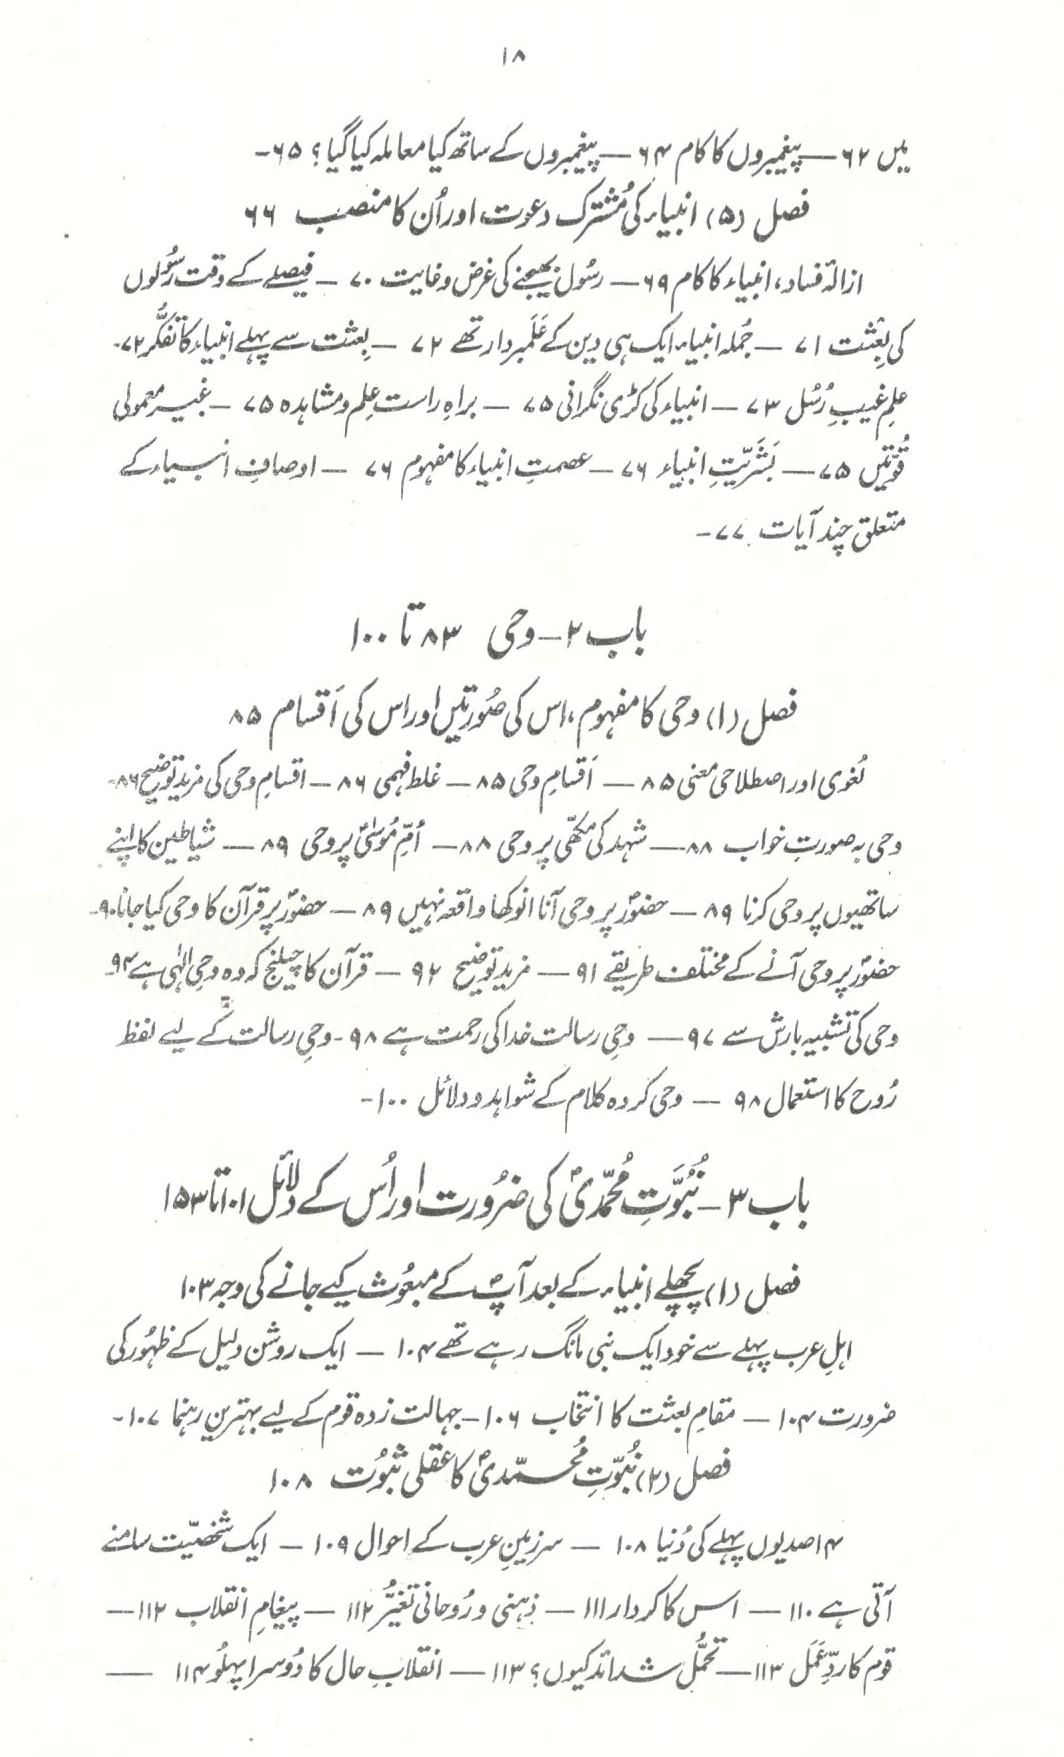 ۱۸
میں ۶۲ — پیغمبروں کا کام ۶۴ — پیغمبروں کے ساتھ کیا معاملہ کیا گیا؟ ۶۵-
فصل (۵) انبیاء کی مُشترک دعوت اور اُن کا منصب ۶۶
ازالۂ فساد، انبیاء کا کام ۶۹ — رسُول بھیجنے کی غرض و غایت ۷۰ — فیصلے کے وقت رسُولوں
کی بِعثت ۷۱ — جُملہ انبیاء ایک ہی دین کے عَلَمبردار تھے ۷۲ — بِعثت سے پہلے انبیاء کا تفکُّر ۷۲-
علمِ غیبِ رُسُل ۷۳ — انبیاء کی کڑی نگرانی ۷۵ — براہِ راست عِلم و مشاہدہ ۷۵ — غیر معمولی
قُوّتیں ۷۵ — بَشَرِیّتِ انبیاء ۷۶ — عصمتِ انبیاء کا مفہوم ۷۶ — اوصافِ انبیاء کے
متعلق چند آیات ۷۷-
باب ۲ — وحی ۸۳ تا ۱۰۰
فصل (۱) وحی کا مفہوم، اس کی صُورتیں اور اس کی اَقسام ۸۵
لُغوی اور اصطلاحی معنی ۸۵ — اَقسامِ وحی ۸۵ — غلط فہمی ۸۶ — اقسامِ وحی کی مزید توضیح ۸۶-
وحی بہ صورتِ خواب ۸۸ — شہد کی مکھّی پر وحی ۸۸ — اُمِّ مُوسٰیؑ پر وحی ۸۹ — شیاطین کا اپنے
ساتھیوں پر وحی کرنا ۸۹ — حضورؐ پر وحی آنا انوکھا واقعہ نہیں ۸۹ — حضورؐ پر قرآن کا وحی کیا جانا ۹۰-
حضورؐ پر وحی آنے کے مختلف طریقے ۹۱ — مزید توضیح ۹۲ — قرآن کا چیلنج کہ وہ وحیِ الٰہی ہے ۹۴-
وحی کی تشبیہ بارش سے ۹۷ — وحیِ رسالت خدا کی رحمت ہے ۹۸ - وحیِ رسالت کے لیے لفظ
رُوح کا استعمال ۹۸ — وحی کردہ کلام کے شواہد و دلائل ۱۰۰-
باب ۳ — نُبُوَّتِ مُحمّدیؐ کی ضرُورت اور اُس کے دلائل ۱۰۱ تا ۱۵۳
فصل (۱) پچھلے انبیاء کے بعد آپؐ کے مبعُوث کیے جانے کی وجہ ۱۰۳
اہلِ عرب پہلے سے خود ایک نبی مانگ رہے تھے ۱۰۴ — ایک روشن دلیل کے ظہُور کی
ضرورت ۱۰۴ — مقامِ بعثت کا انتخاب ۱۰۶ — جہالت زدہ قوم کے لیے بہترین رہنما ۱۰۷-
فصل (۲) نُبوّتِ مُحمّدیؐ کا عقلی ثبُوت ۱۰۸
۱۴ صدیوں پہلے کی دُنیا ۱۰۸ — سرزمینِ عرب کے احوال ۱۰۹ — ایک شخصیّت سامنے
آتی ہے ۱۱۰ — اس کا کردار ۱۱۱ — ذہنی و رُوحانی تغیُّر ۱۱۲ — پیغامِ انقلاب ۱۱۲ —
قوم کا ردِّ عَمَل ۱۱۳ — تحمُّلِ شدائد کیوں؟ ۱۱۳ — انقلابِ حال کا دُوسرا پہلُو ۱۱۴ —